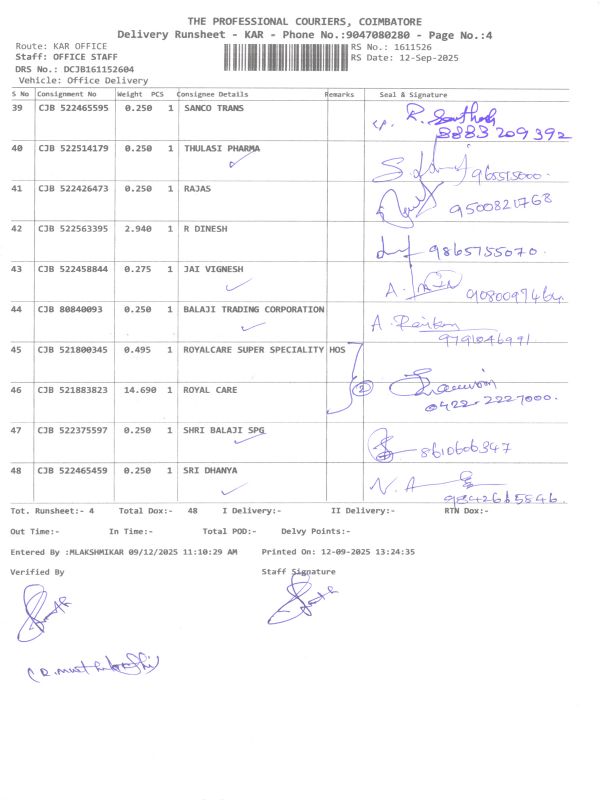 THE PROFESSIONAL COURIERS, COIMBATORE
Delivery Runsheet - KAR - Phone No.:9047080280 - Page No.:4
Route: KAR OFFICE RS No.: 1611526
Staff: OFFICE STAFF RS Date: 12-Sep-2025
DRS No.: DCJB161152604
Vehicle: Office Delivery
S No Consignment No Weight PCS Consignee Details Remarks Seal & Signature
39 CJB 522465595 0.250 1 SANCO TRANS
8883209392
40 CJB 522514179 0.250 1 THULASI PHARMA
965515000.
41 CJB 522426473 0.250 1 RAJAS
9500821768
42 CJB 522563395 2.940 1 R DINESH
9865755070.
43 CJB 522458844 0.275 1 JAI VIGNESH
44 CJB 80840093 0.250 1 BALAJI TRADING CORPORATION
9791046991
45 CJB 521800345 0.495 1 ROYALCARE SUPER SPECIALITY HOS
46 CJB 521883823 14.690 1 ROYAL CARE 2
0422-2227000.
47 CJB 522375597 0.250 1 SHRI BALAJI SPG
8610606347
48 CJB 522465459 0.250 1 SRI DHANYA
N. A
9842665846.
Tot. Runsheet:- 4 Total Dox:- 48 I Delivery:- II Delivery:- RTN Dox:-
Out Time:- In Time:- Total POD:- Delvy Points:-
Entered By :MLAKSHMIKAR 09/12/2025 11:10:29 AM Printed On: 12-09-2025 13:24:35
Verified By Staff Signature